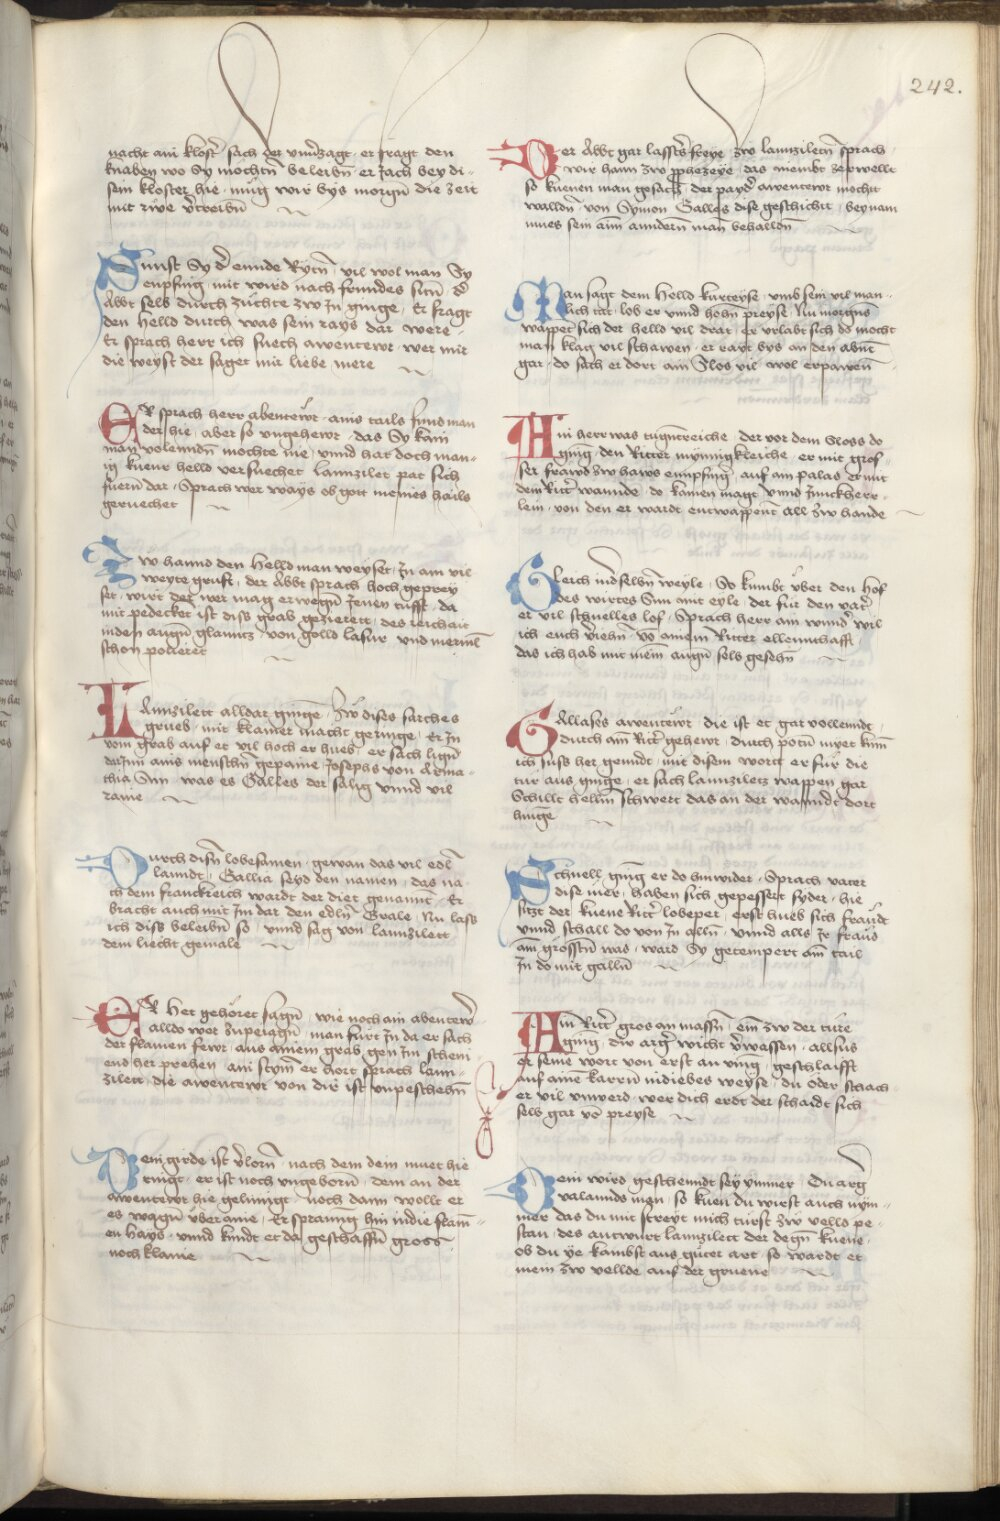 242.
nacht ain kloster sach der vnverzagt · er fragt den
knaben wo Sy möchtn beleibn · er Jach bey di-
sem kloster hie · mug wir bys morgn die zeit
mit rwe vertreibn
Sunst Sy der ennde Rytn · vil wol man Sy
enpfing · mit wird nach frundes sitn der
Abbt selb durch züchte zw In ginge · Er fragt
den Helld durch was sein rays dar were ·
Er sprach herr ich suech awentewr · wer mir
die weyst der saget mir liebe mere
ER sprach herr abentewr · ains tails fund man
der hie · aber so vngehewr · das Sy kain
man volenndn mochte nie · vnnd hat doch man-
ig kuene helld versuechet lannzilet pat sich
fuern dar · Sprach wer ways ob gott meines hails
geruechet
Zw hannd den Helld man weyset · In ain vil
weyte gruft · der Abbt sprach hoch geprey-
set · wirt der wer mag erwegn Jenen tufft · da
mit pedecket ist diss grab gezierett · des reichait
in den augn glanntz · von golld lasur vnd mermel
schon polieret
Lannzilett alldar ginge · Zw dises sarches
grueb · mit klainer macht geringe · Er In
vom grab auf er vil hoch er hueb · er sach lign
darInn ains menschn gepaine Josephs von Arma-
thia Sun was es Galles der sälig vnnd vil
raine
Durch disn lobesamen · gewan das vil edl
lanndt · Gallia seyd den namen · das na-
ch dem franckreich wardt der diet genannt · Er
bracht auch mit Im dar den edln Grale · Nu lass
ich diss beleibn so · vnnd sag von lannzilett
dem liecht gemale
ER Het gehöret sagn · wie noch ain abentewr
alldo wer Zuperiagn · man fürt In da er sach
der flamen fewr · aus ainem grab gen Im schein-
end her prehen · ain stym er hort sprach lann-
zilett · die awentewr von dir ist vnpeschehn
Dein girde ist verlorn · nach dem dein muet hie
ringt · er ist noch vngeborn · dem an der
awentewr hie gelinngt · noch dann wollt er
es wagn vberaine · Er sprannng hin in die flam-
en hays · vnnd kundt er da geschaffn gross
noch klaine
Der Abbt gar lassters freye zw lannziletn sprach ·
wir hann zw prophezeye · das meindt Zepwellt
so kuenen man gesach · der payder awentewr mocht
walldn · von Symon Galles dise geschicht · bey nam
mues sein ainn anndern man behalldn
Man sagt dem Helld kurteyse · vmb sein vil man-
lich tat · lob er vnnd hohn preyse · Nu morgns
wappet sich der helld vil drat · er vrlabt sich do mocht
man klag vil schawen · er rayt bys an den abnt
gar · do sach er dort ain Slos vil wol erpawen
Ain herr was tugntreiche · der vor dem Sloss do
ging · den Ritter mynnigkleiche · er mit gros-
ser frawd zw haws ennpfing · auf ain palas er mit
dem Ritter wannde · do kamen magt vnnd Junckherr-
lein · von den er wardt entwappent all zw hande
Gleich in derselbn weyle · So kumbt vber den Hof
des wirtes Sun mit eyle · der für den vater
er vil schnelles lof · Sprach herr ain wunder wil
ich euch Jechn · vo ainem Ritter ellennthafft
das ich hab mit mein augn selb gesehn
Gallases awentewr die ist er gar vollenndt ·
durch ain Ritter gehewr · durch potn
ich suss her genndt · mit disem wortt er für die
tür aus ginge · er sach lannzilets wappen gar
Schillt hellm schwert das an der wanndt dort
hinge
Schnell ging er do hinwider · Sprach vater
dise mer · haben sich gepessert syder · hie
sitzt der kuene Ritter lobeper · erst hueb sich fraudt
vnnd schall do von In alln · vnnd alls Ir fraud
am grosstn was · ward Sy getempert ain tail
In do mit galln
Ain Ritter gros an massn · ein zw der türe
ging · der arg wicht verwassen · allsus
er seine wort von erst an ving · geschlaifft
auf ainen karrn in diebes weyse · du öder schach-
er vil vnwerd · wer dich erdt der schaidt sich
selb gar vo preyse
Dein wird geschenndt sey ymmer · du arg
valannds man · so kuen du wirst auch nym-
mer das du mit streyt mich türst zw velld pe-
stan · des antwurt lannzilett der degn kuene ·
ob du ye kambst aus guter art · so wardt er
mein zw vellde auf der gruene